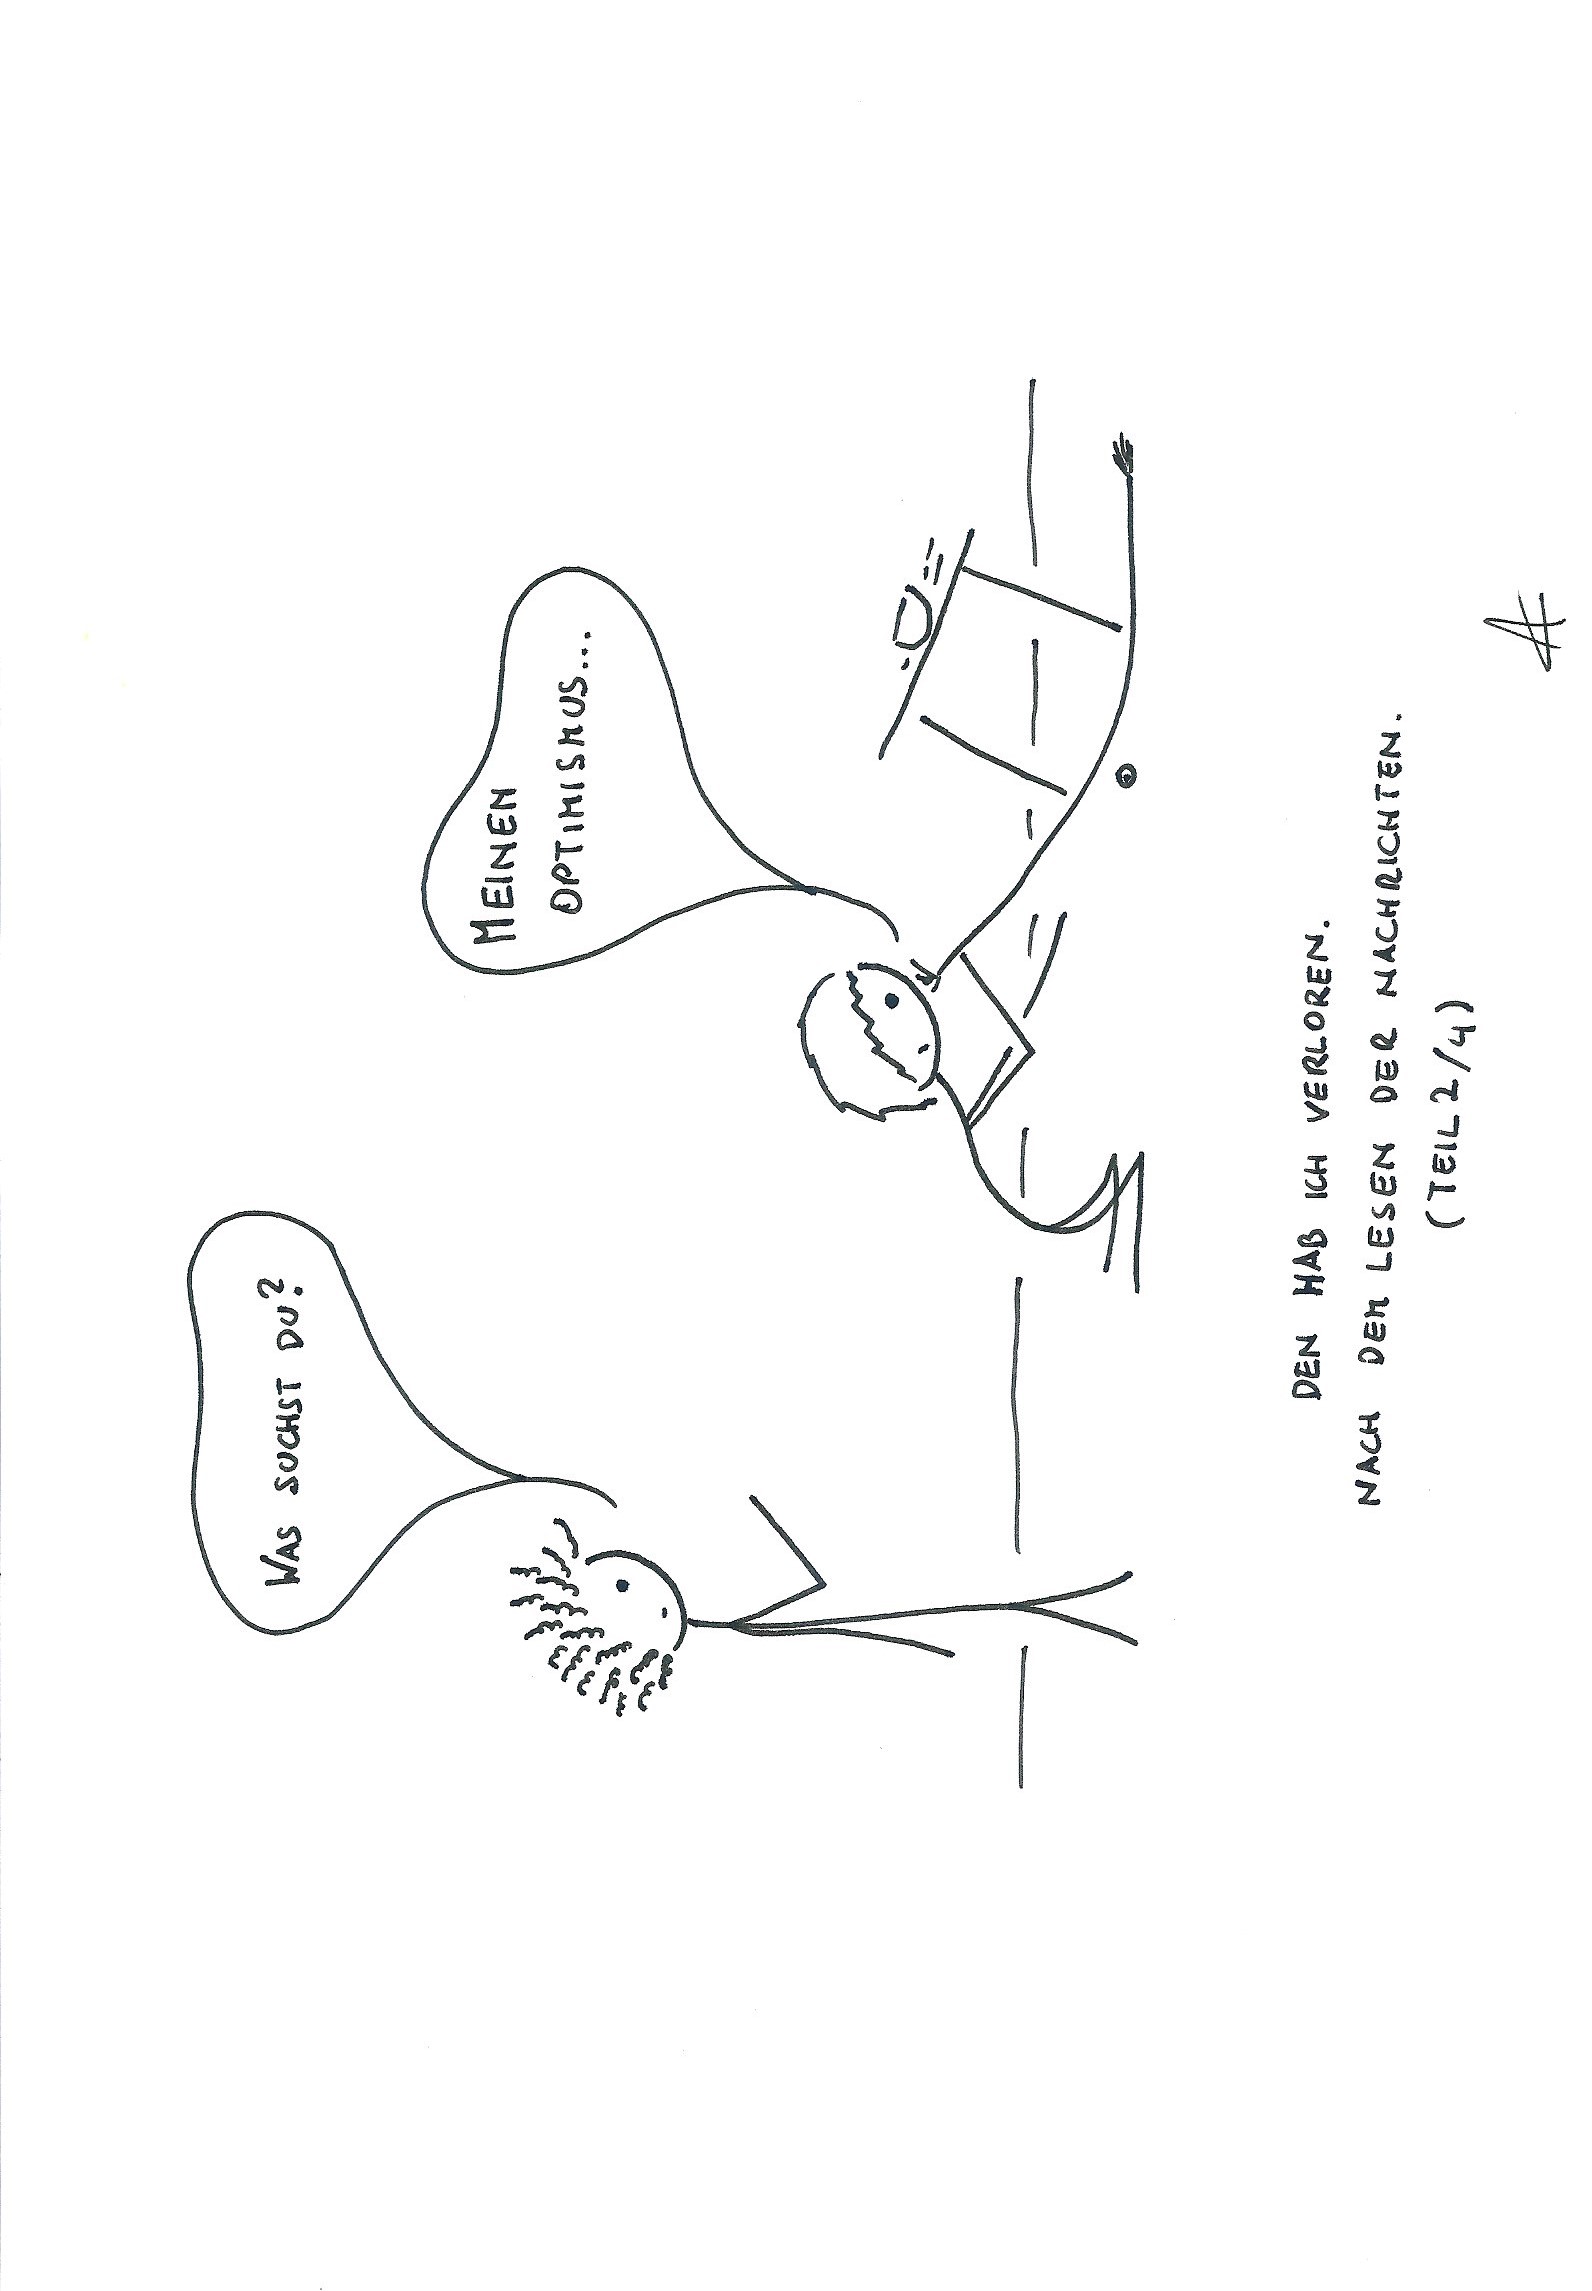 WAS SUCHST DU?
MEINEN
OPTIMISMUS...
DEN HAB ICH VERLOREN.
NACH DEM LESEN DER NACHRICHTEN.
(TEIL 2/4)